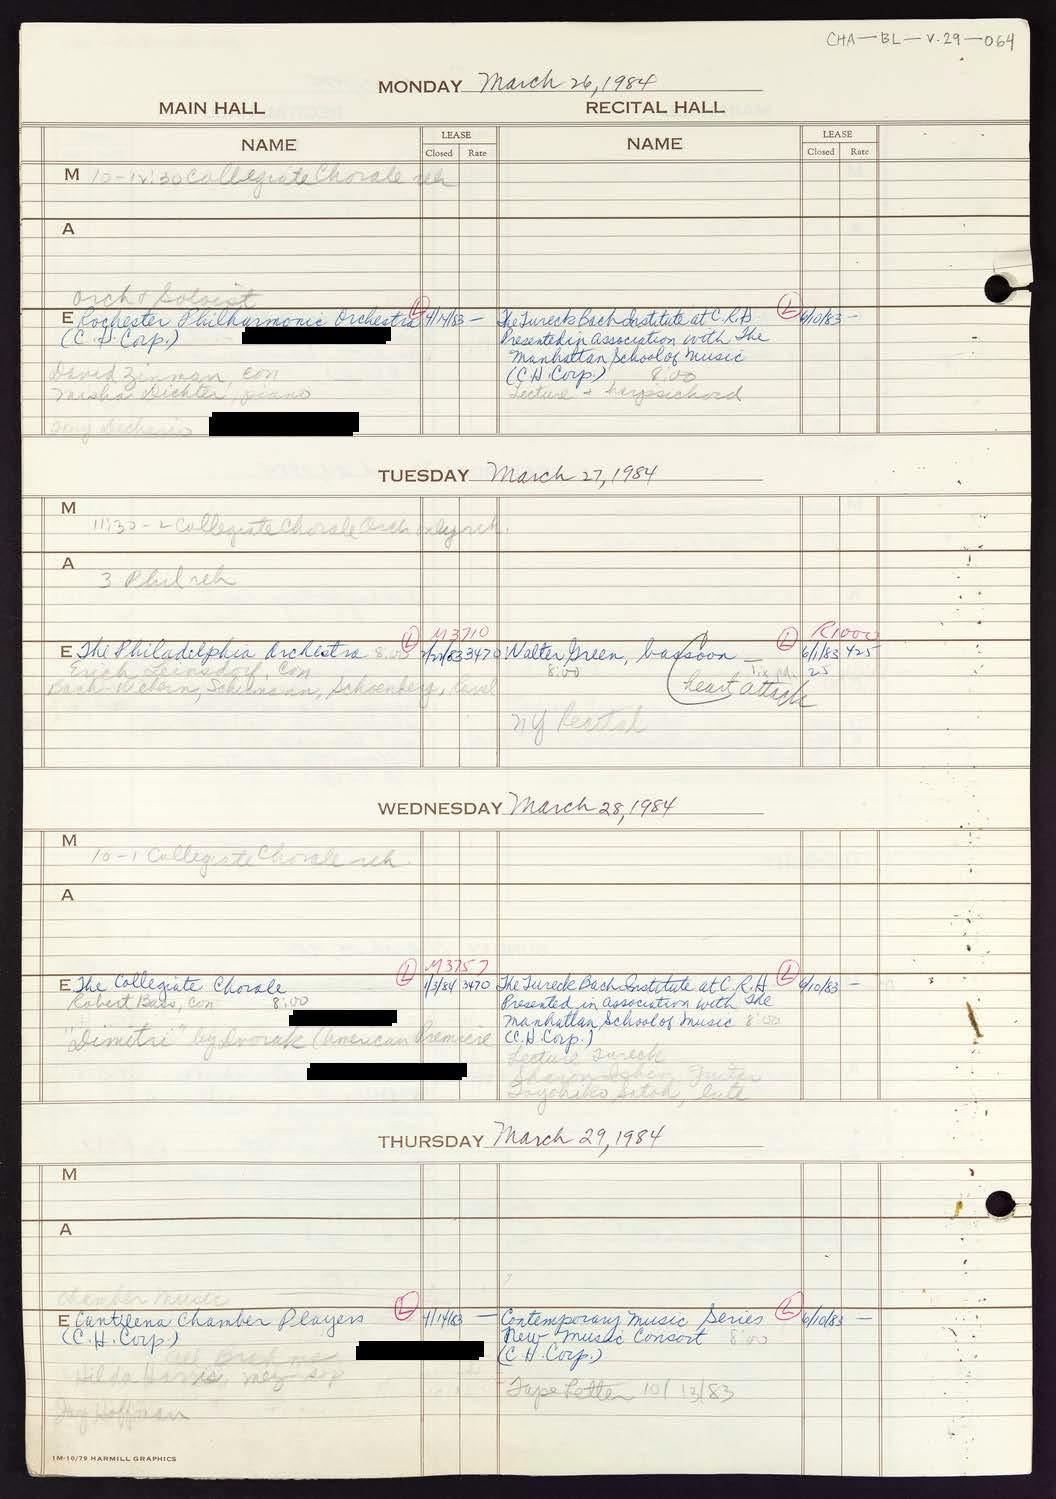 CHA-BL-V.29-064
MONDAY March 26, 1984
MAIN HALL RECITAL HALL
NAME LEASE NAME LEASE
Closed Rate Closed Rate
M 10-12:30 Collegiate Chorale reh
A
Orch & Soloist
E Rochester Philharmonic Orchestra L 4/14/83 -
(C.H. Corp.)
David Zinman, con
Misha Dichter, piano
Tony Dechario
The Tureck Bach Institute at C.R.H. L 6/10/83 -
Presented in association with The
Manhattan School of Music
(C.H. Corp.) 8:00
Lecture & harpsichord
TUESDAY March 27, 1984
M
11:30-2 Collegiate Chorale Orch only reh.
A
3 Phil reh
M3710
E The Philadelphia Orchestra 8:00 L 3470
Erich Leinsdorf, con
Bach-Webern, Schumann, Schoenberg, Ravel
R1000
Walter Green, bassoon - L 6/1/83 425
8:00 25
(heart attack
NY Recital
WEDNESDAY March 28, 1984
M
10-1 Collegiate Chorale reh.
A
M3757
E The Collegiate Chorale L 1/3/84 3470
Robert Bass, con 8:00
"Dimitri" by Dvorak (American Premiere
The Tureck Bach Institute at C.R.H L 6/10/83 -
Presented in association with The
Manhattan School of Music 8:00
(C.H. Corp.)
Lecture Tureck
Sharon Isbin, Guitar
Toyohiko Satoh, lute
THURSDAY March 29, 1984
M
A
Chamber Music
E Cantilena Chamber Players L 4/14/83 -
(C.H. Corp.)
Hilda Harris, mez-sop
Jay Hoffman
Contemporary Music Series L 6/10/83 -
New Music Consort 8:00
(C.H. Corp.)
Tape Letter 10/13/83
1M-10/79 HARMILL GRAPHICS